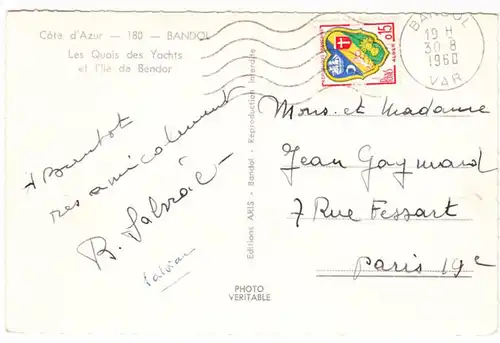 Côte d'Azur — 180 — BANDOL
Les Quais des Yachts
et l'Ile de Bendor
+ Bientot
res amicalement
Editions ARIS - Bandol - Reproduction Interdite
PHOTO
VERITABLE
BANDOL
19 H
30 8
1960
VAR
0,15
ALGER
Mons. et Madame
Jean Gaymard
7 Rue Fessart
Paris 19e